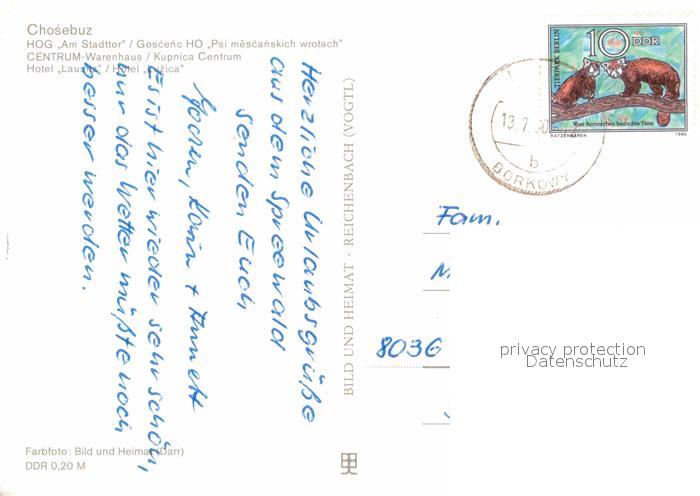 Chośebuz
HOG „Am Stadttor“ / Gosćeńc HO „Pśi měsćańskich wrotach“
CENTRUM-Warenhaus / Kupnica Centrum
Hotel „Lausitz“ / Hotel „Łužica“
Herzliche Urlaubsgrüße
aus dem Spreewald
senden Euch
Karin + Annett
Es ist hier wieder sehr schön,
nur das Wetter müßte noch
besser werden.
Farbfoto: Bild und Heimat (Darr)
DDR 0,20 M
BILD UND HEIMAT · REICHENBACH (VOGTL)
TIERPARK BERLIN
10 DDR
Vom Aussterben bedrohte Tiere
KATZENBÄREN 1980
13.7.80
b
BORKOWY
Fam.
M
8036
privacy protection
Datenschutz